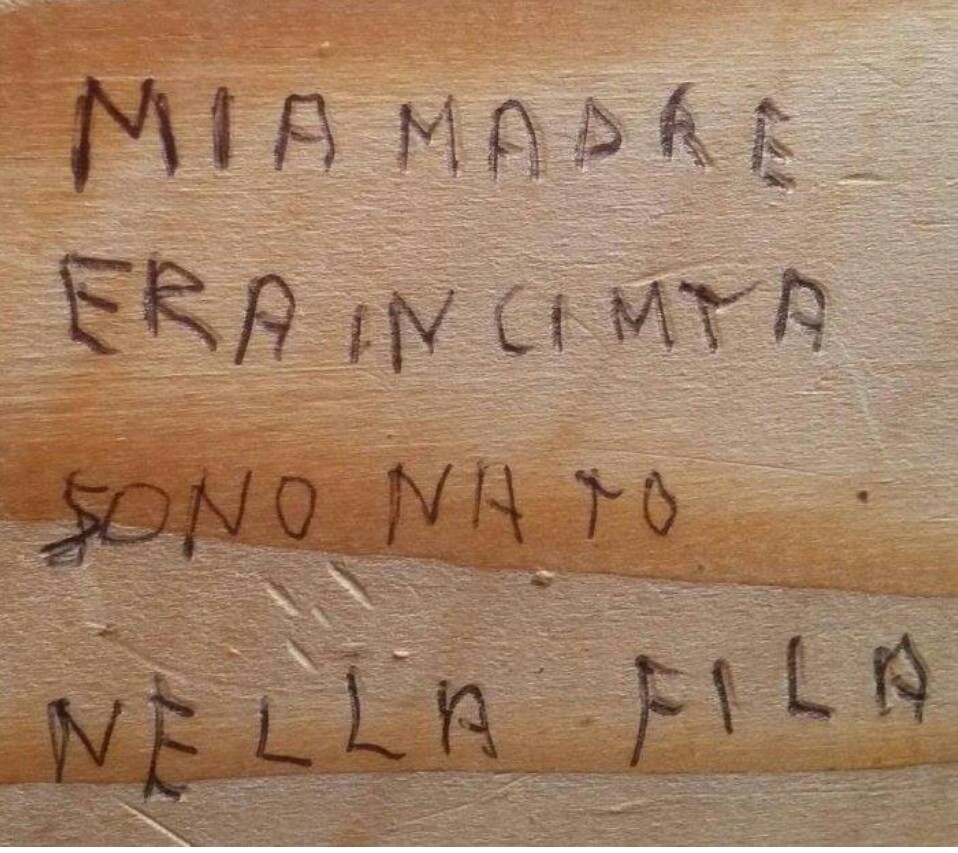 MIA MADRE
ERA INCIMTA
SONO NATO
NELLA FILA